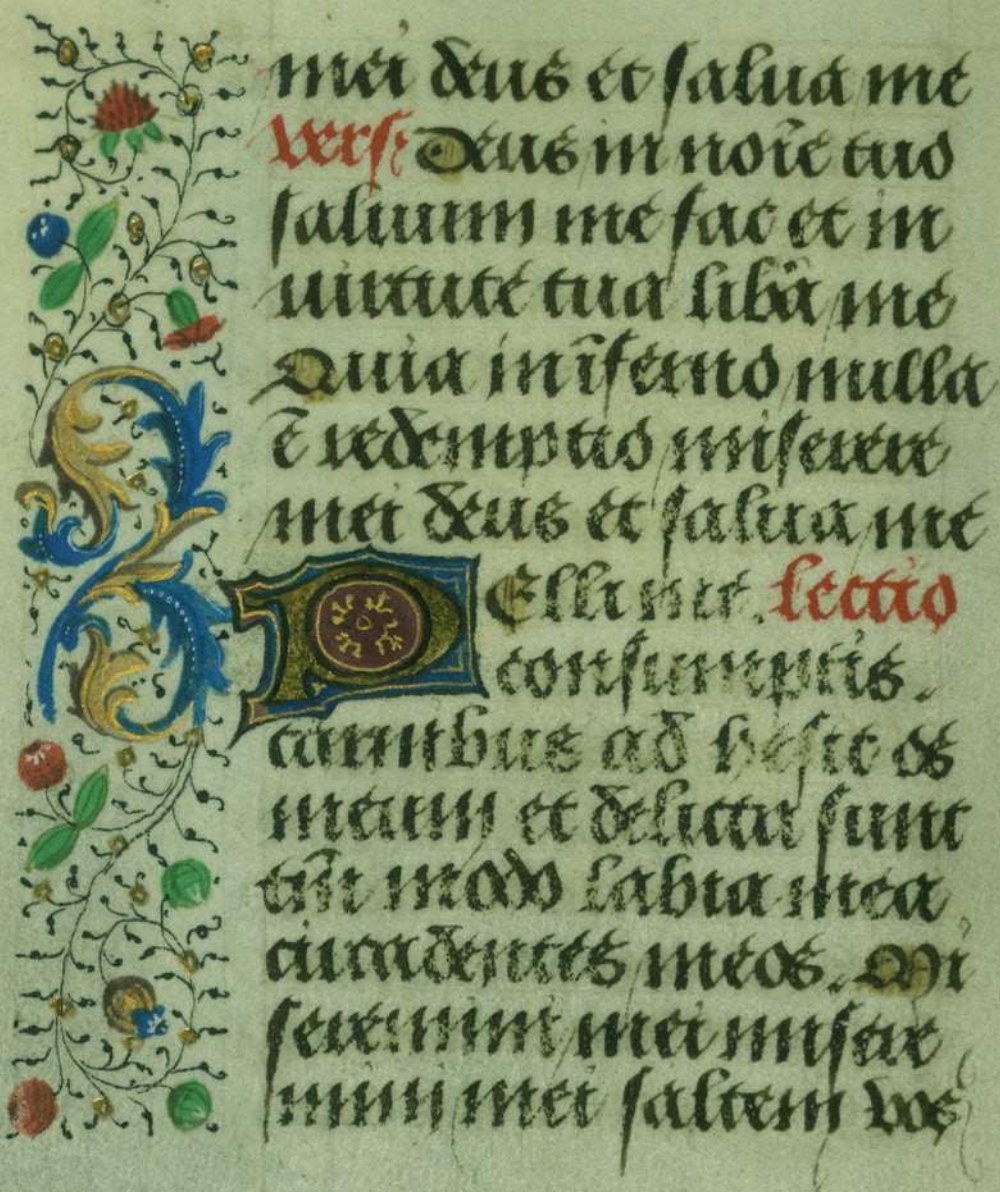 mei deus et salua me
vers̄ Deus in noīe tuo
saluum me fac et in
uirtute tua libā me
Quia in īferno nulla
ē redemptio miserere
mei deus et salua me
PElli mee. lectio
consumptis.
carnibus ad hesit os
meum et delicta sunt
tm̄ modo labia mea
circa dentes meos. Mi
seremini mei misere
mini mei saltem vos